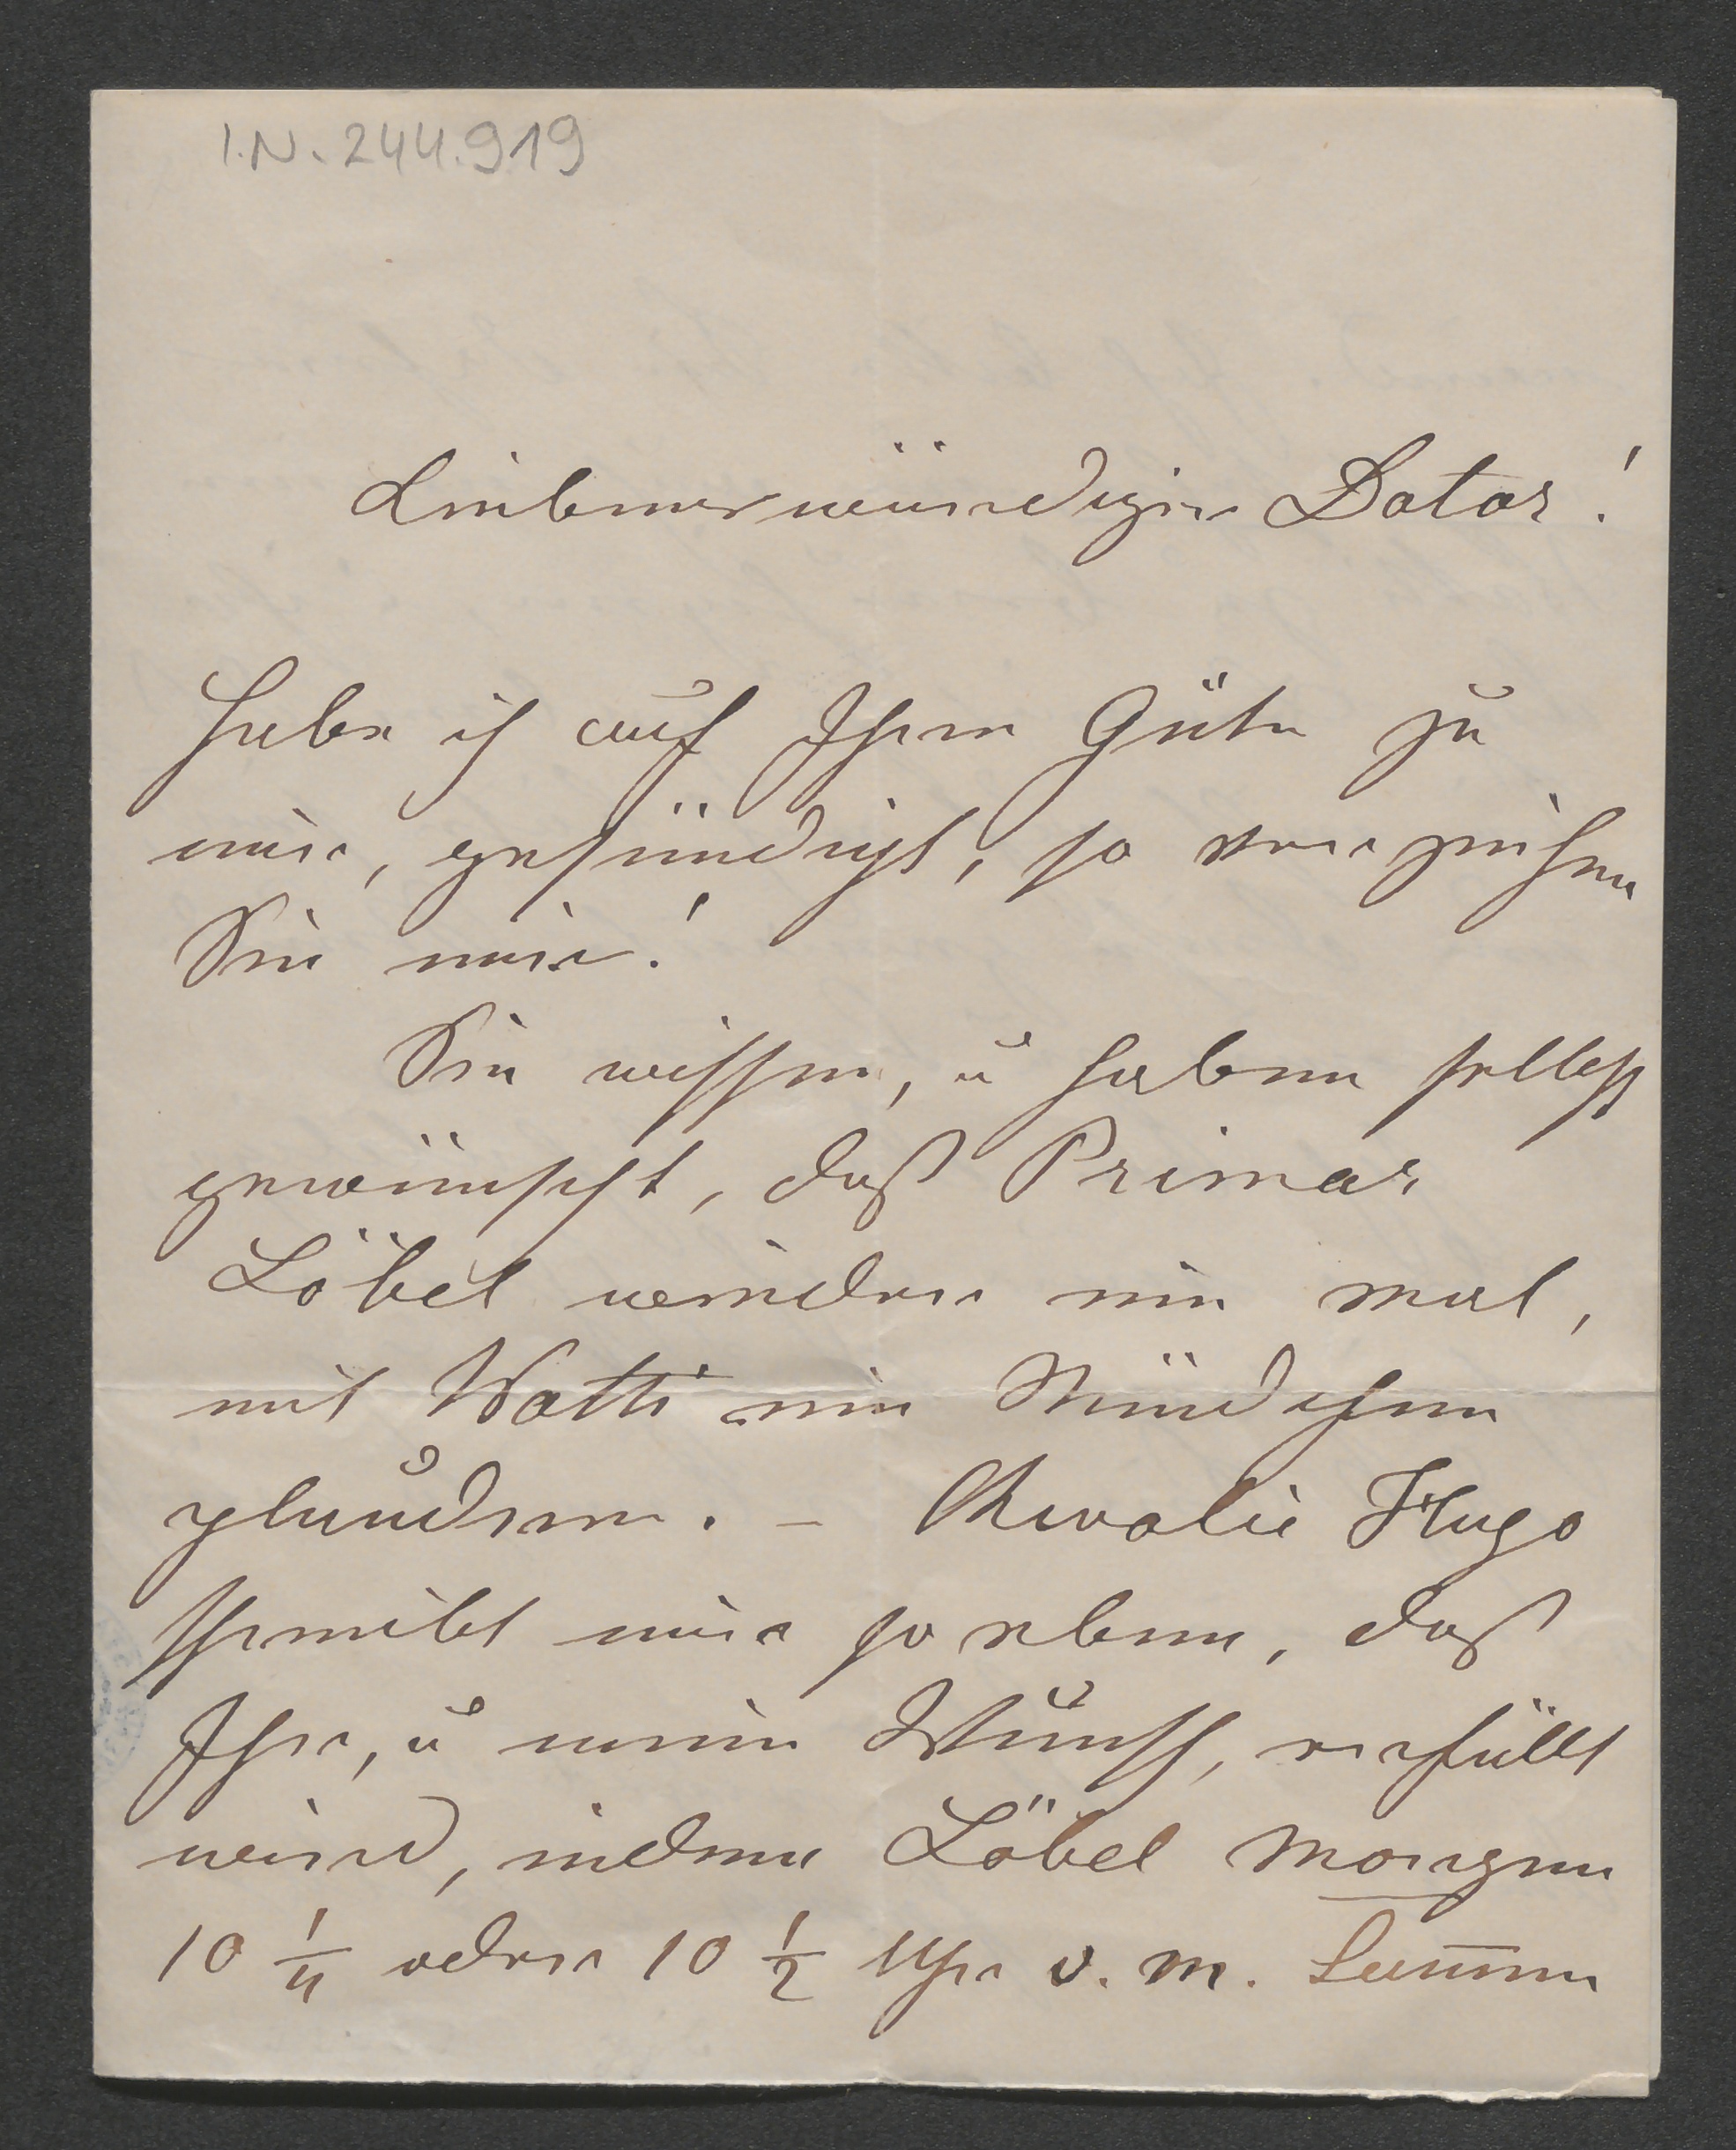 I.N. 244.919
Liebenswürdiger Dotor!
Habe ich auf Ihre Güte zu
mir, gesündigt, so verzeihen
Sie mir!
Sie wissen, u haben selbst
gewünscht, daß Primar
Löbel wieder ein mal,
mit Watti ein Stündchen
plaudere. – Hugo
schreibt mir so eben, daß
Ihr, u mein Wunsch, erfüllt
wird, indem Löbel morgen
10 1/4 oder 10 1/2 Uhr v. m.